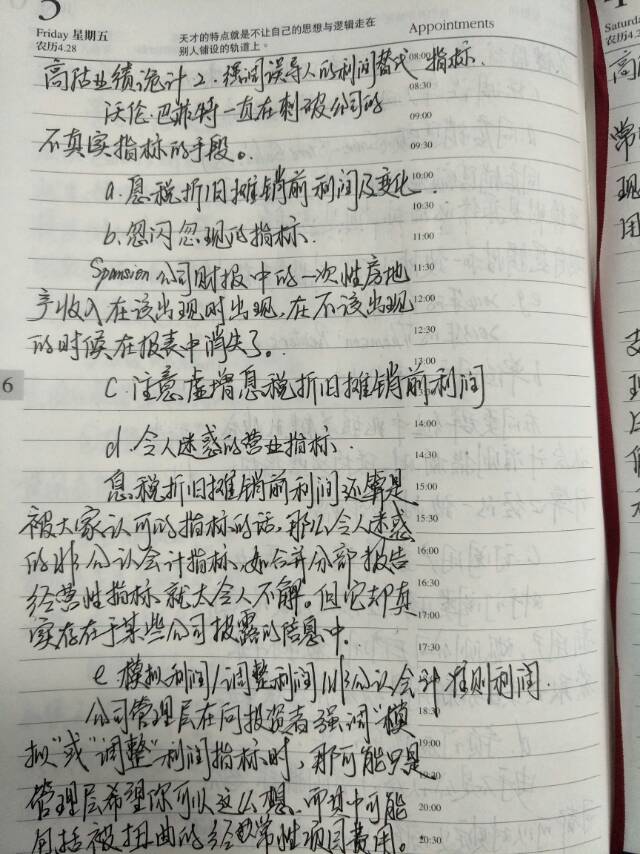 5
Friday 星期五
农历4.28
天才的特点就是不让自己的思想与逻辑走在
别人铺设的轨道上。
Appointments
Saturda
农历4.2
高估业绩诡计2.强调误导人的利润替代指标.
08:00
沃伦·巴菲特一直在刺破公司的
08:30
09:00
不真实指标的手段。
09:30
a.息税折旧摊销前利润及变化.
10:00
10:30
b.忽闪忽现的指标.
11:00
Spansion公司财报中的一次性房地
11:30
产收入在该出现时出现,在不该出现
12:00
的时候在报表中消失了。
12:30
13:00
6
c.注意虚增息税折旧摊销前利润
14:00
d.令人迷惑的营业指标.
14:30
息税折旧摊销前利润还算是
15:00
被大家认可的指标的话,那么令人迷惑
15:30
的非公认会计指标,如合并分部报告
16:00
经营性指标就太令人不解。但它却真
16:30
17:00
实存在于某些公司披露的信息中.
17:30
e模拟利润/调整利润/非公认会计准则利润.
公司管理层在向投资者强调“模
18:30
拟”或“调整”利润指标时,那可能只是
19:00
19:30
管理层希望你可以这么想,而其中可能
20:00
包括被扭曲的经常性项目费用。
20:30